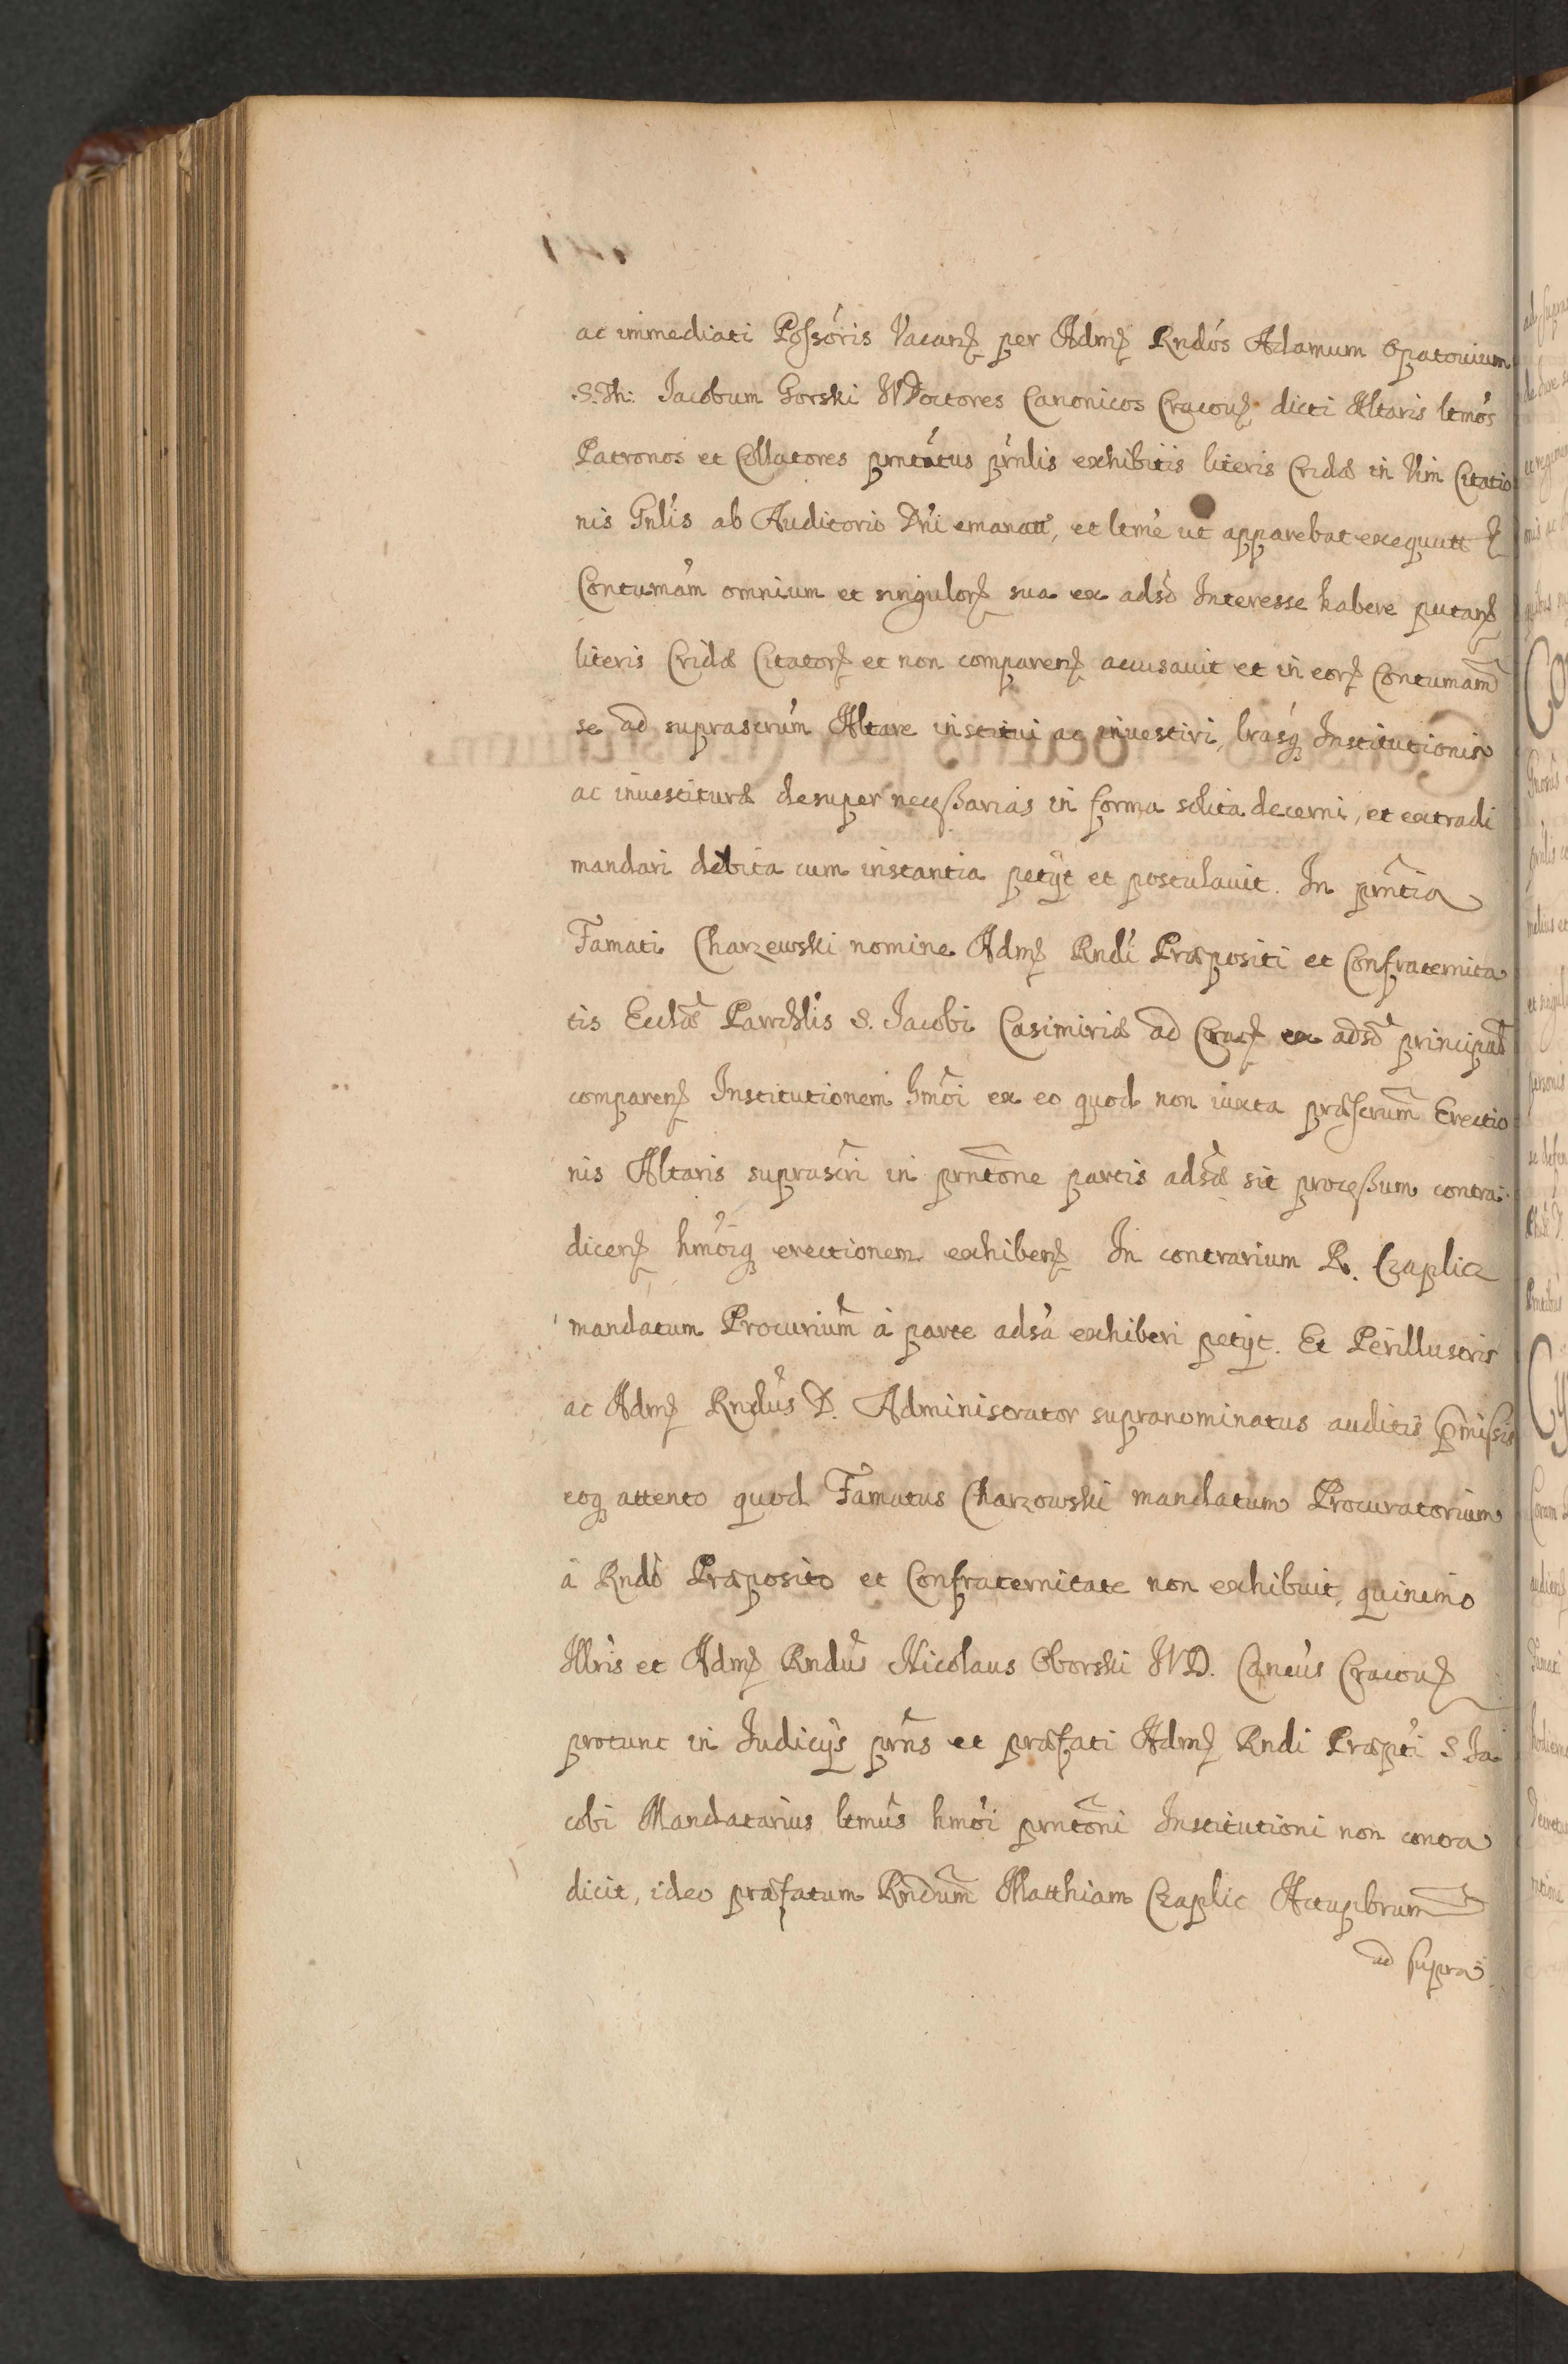 ac immediati Possóris Vacanȝ per Admȝ Rndós Adamum Opatouium
S. Th: Jacobum Gorski IVDoctores Canonicos Cracouȝ dicti Altaris ltmós
Patronos et Collatores prntátus prnlis exhibitis literis Cridæ in Vim Citatio
nis Gnlís ab Auditorio Dńi emanatt, et ltmè ut apparebat exequutt
Contumám omnium et singulorȝ sua ex adsò Interesse habere putanȝ
literis Cridæ Citatorȝ et non comparenȝ accusauit et in eorȝ Contumam̃
se ad suprascrúm Altare institui ac inuestiri, lrasq́ Institutionis
ac inuestituræ desuper necessarias in forma solita decerni, et extradi
mandari debita cum instantia petijt et postulauit. In prñtia
Famati Charzewski nomine Admȝ Rndí Præpositi et Confraternita
tis Ecclæ Parrchlis S. Jacobi Casimiriæ ad Cracȝ ex adsò principal
comparenȝ Institutionem hmõi ex eo quod non iuxta præscrum̃ Erectio
nis Altaris suprascri in prntõne partis adsæ sit processum contra
dicenȝ hmõiq erectionem exhibenȝ In contrarium R. Czaplic
mandatum Procurium̃ à parte adsà exhiberi petijt. Et Perillustris
ac Admȝ Rndus D. Administrator supranominatus auditis pmissis
eoq attento quod Famatus Charzowski mandatum Procuratorium
à Rndò Præposito et Confraternitate non exhibuit, quinimo
Illris et Admȝ Rndus Nicolaus Oborski IVD. Cancus Cracouȝ
protunc in Iudicijs prns et præfati Admȝ Rndi Præpti S Ja
cobi Mandatarius ltmus hmõi prntõni Institutioni non contra
dicit, ideo præfatum Rndum̃ Matthiam Czaplic Actupbrum
ad supra